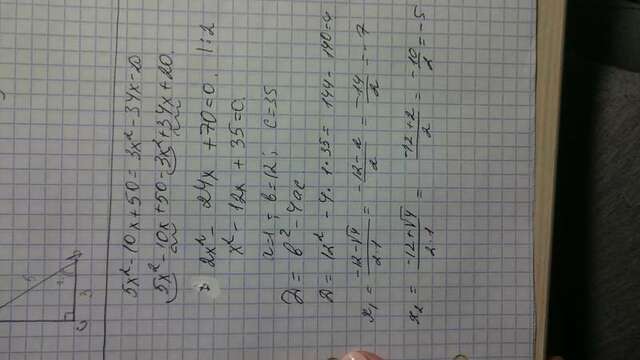 5x² - 10x + 50 = 3x² - 34x - 20
5x² - 10x + 50 - 3x² + 34x + 20.
2x² - 24x + 70 = 0. |:2
x² - 12x + 35 = 0.
a=1; b=12; c=35
D = b² - 4ac
D = 12² - 4·1·35 = 144 - 140 = 4
x₁ = (-12-√4)/(2·1) = (-12-2)/2 = -14/2 = -7
x₂ = (-12+√4)/(2·1) = (-12+2)/2 = -10/2 = -5